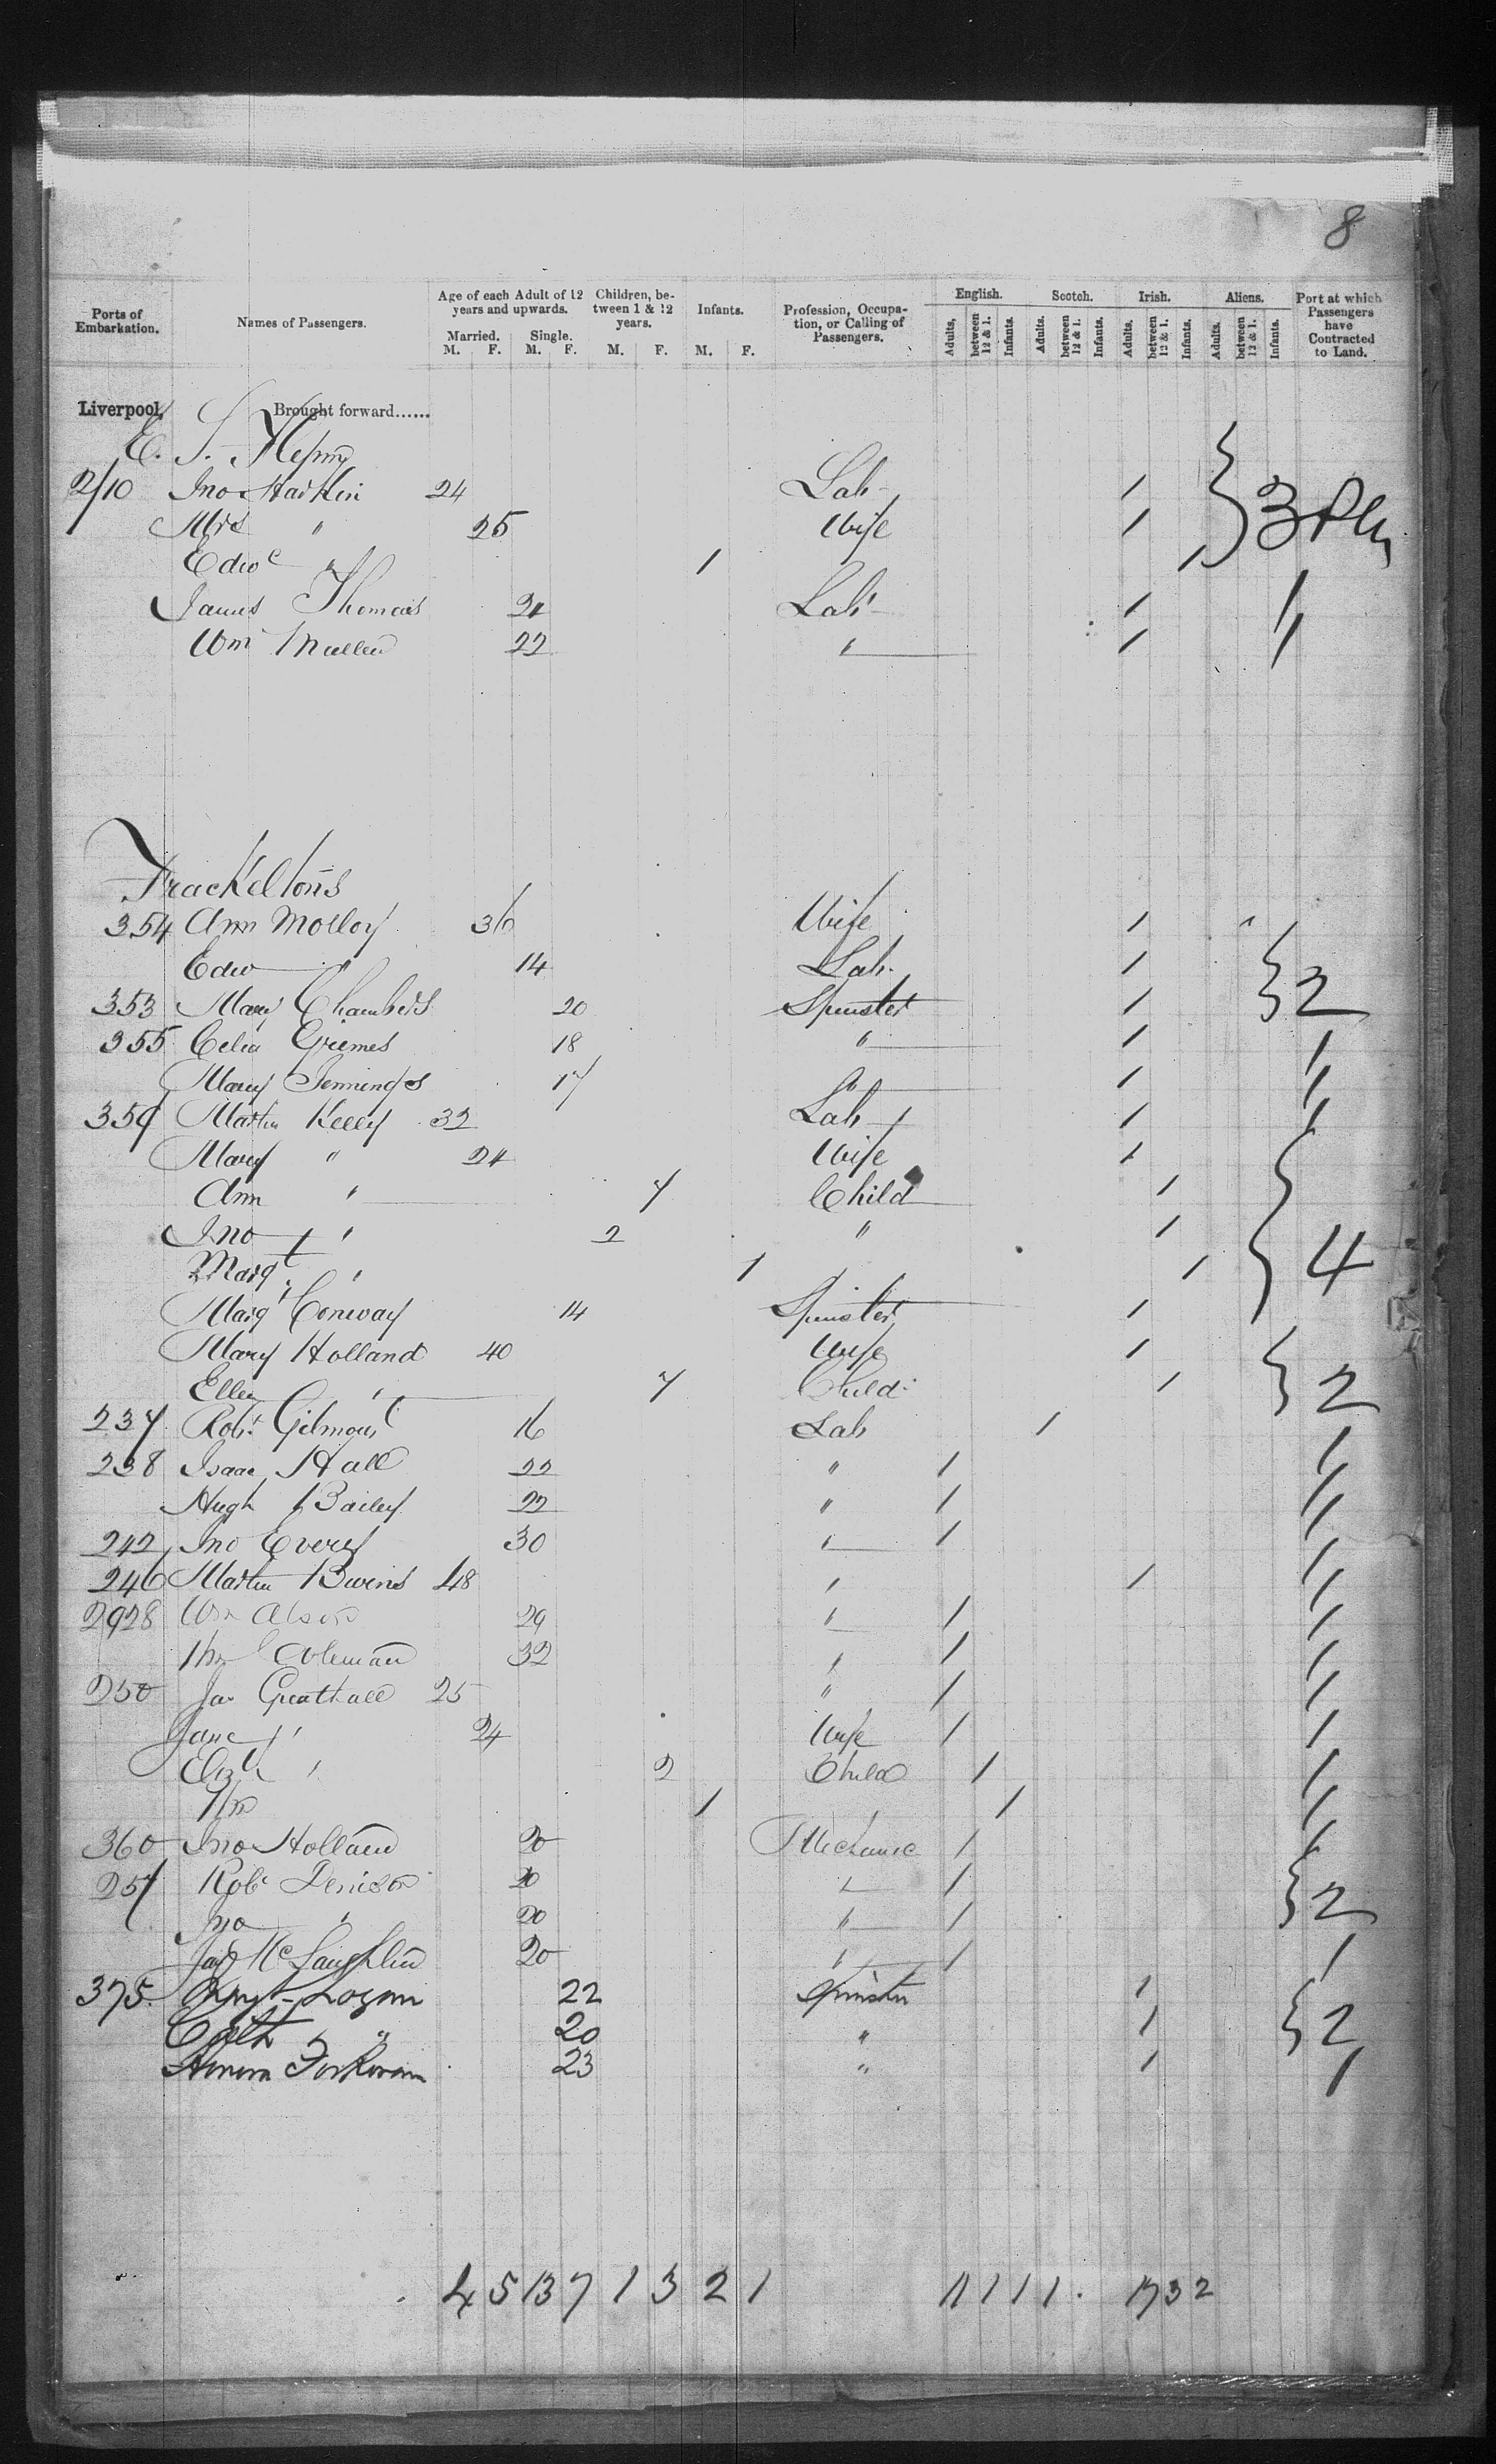 8
Ports of Embarkation. Names of Passengers. Age of each Adult of 12 years and upwards. Married. M. F. Single. M. F. Children, between 1 & 12 years. M. F. Infants. M. F. Profession, Occupation, or Calling of Passengers. English. Adults, between 12 & 1. Infants. Scotch. Adults. between 12 & 1. Infants. Irish. Adults. between 12 & 1. Infants. Aliens. Adults. between 12 & 1. Infants. Port at which Passengers have Contracted to Land.
Liverpool, Brought forward......
E. S.
2/10 Jno Harkin 24 Lab 1 3
Mrs " 25 Wife 1
Edwd " 1 1
James Thomas 21 Labr 1 1
Wm Mullen 22 " 1 1
Frackeltons
354 Ann Molloy 36 Wife 1
Edw " 14 Lab. 1 2
353 Mary Chambers 20 Spinster 1
355 Celia Griemes 18 " 1 1
Mary Jennings 17 " 1 1
359 Martin Kelly 32 Lab 1 1
Mary " 24 Wife 1
Ann " 7 Child 1
Jno " 2 " 1
Margt " 1 1 4
Margt Conway 14 Spinster 1
Mary Holland 40 Wife 1
Ellen " 7 Child 1 2
237 Robt Gilmour 16 Lab 1 1
238 Isaac Hall 22 " 1 1
Hugh Bailey 22 " 1 1
242 Jno Every 30 " 1 1
246 Martin Burns 48 " 1 1
2928 Wm 29 " 1 1
Coleman 32 " 1 1
250 Jas Greathall 25 " 1 1
Jane " 24 Wife 1 1
Elizth " 2 Child 1 1
1 1 1
360 Jno Holland 20 Mechanic 1 1
257 Robt Denison 20 " 1 2
Jno " 20 " 1
Jas McLaughlin 20 " 1 1
375. Logan 22 Spinster 1 2
Cath " 20 " 1
23 " 1 1
4 5 13 7 1 3 2 1 11 1 1 1 . 17 3 2